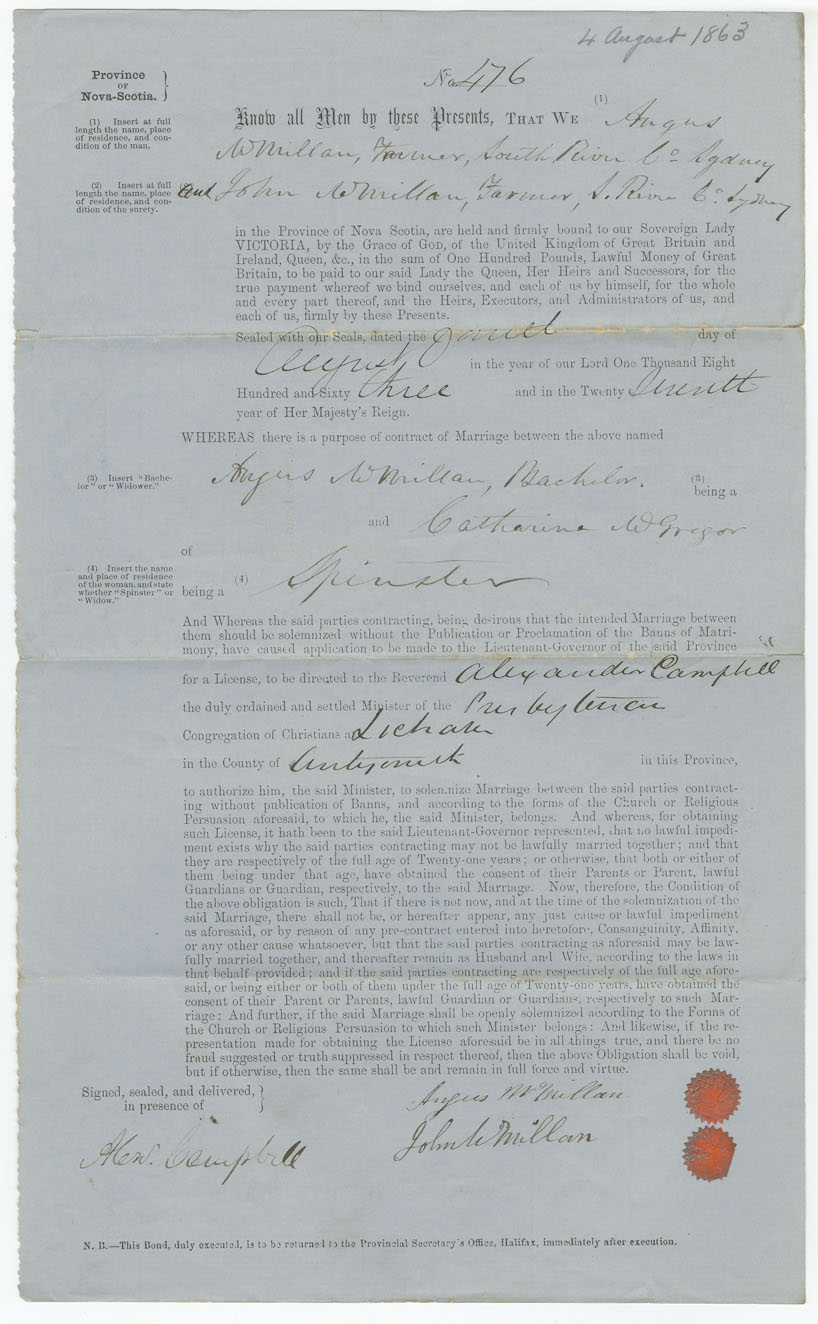 4 August 1863
No. 476
Province
OF
Nova-Scotia. }
(1) Insert at full
length the name, place
of residence, and con-
dition of the man.
Know all Men by these Presents, THAT WE (1) Angus
McMillan, Farmer, South River Co Sydney
(2) Insert at full
length the name, place
of residence, and con-
dition of the surety.
and John McMillan, Farmer, S. River Co. Sydney
in the Province of Nova Scotia, are held and firmly bound to our Sovereign Lady
VICTORIA, by the Grace of GOD, of the United Kingdom of Great Britain and
Ireland, Queen, &c., in the sum of One Hundred Pounds, Lawful Money of Great
Britain, to be paid to our said Lady the Queen, Her Heirs and Successors, for the
true payment whereof we bind ourselves, and each of us by himself, for the whole
and every part thereof, and the Heirs, Executors, and Administrators of us, and
each of us, firmly by these Presents.
Sealed with our Seals, dated the day of
August in the year of our Lord One Thousand Eight
Hundred and Sixty three and in the Twenty Seventh
year of Her Majesty's Reign.
WHEREAS there is a purpose of contract of Marriage between the above named
(3) Insert "Bache-
lor" or "Widower."
Angus McMillan, Bachelor. (3)
being a
and Catharine McGregor
of
(4) Insert the name
and place of residence
of the woman, and state
whether "Spinster" or
"Widow."
being a (4) Spinster
And Whereas the said parties contracting, being desirous that the intended Marriage between
them should be solemnized without the Publication or Proclamation of the Banns of Matri-
mony, have caused application to be made to the Lieutenant-Governor of the said Province
for a License, to be directed to the Reverend Alexander Campbell
the duly ordained and settled Minister of the Presbyterian
Congregation of Christians at Lochaber
in the County of Antigonish in this Province,
to authorize him, the said Minister, to solemnize Marriage between the said parties contract-
ing without publication of Banns, and according to the forms of the Church or Religious
Persuasion aforesaid, to which he, the said Minister, belongs. And whereas, for obtaining
such License, it hath been to the said Lieutenant-Governor represented, that no lawful impedi-
ment exists why the said parties contracting may not be lawfully married together; and that
they are respectively of the full age of Twenty-one years; or otherwise, that both or either of
them being under that age, have obtained the consent of their Parents or Parent, lawful
Guardians or Guardian, respectively, to the said Marriage. Now, therefore, the Condition of
the above obligation is such, That if there is not now, and at the time of the solemnization of the
said Marriage, there shall not be, or hereafter appear, any just cause or lawful impediment
as aforesaid, or by reason of any pre-contract entered into heretofore, Consanguinity, Affinity,
or any other cause whatsoever, but that the said parties contracting as aforesaid may be law-
fully married together, and thereafter remain as Husband and Wife, according to the laws in
that behalf provided; and if the said parties contracting are respectively of the full age afore-
said, or being either or both of them under the full age of Twenty-one years, have obtained the
consent of their Parent or Parents, lawful Guardian or Guardians, respectively to such Mar-
riage: And further, if the said Marriage shall be openly solemnized according to the Forms of
the Church or Religious Persuasion to which such Minister belongs: And likewise, if the re-
presentation made for obtaining the License aforesaid be in all things true, and there be no
fraud suggested or truth suppressed in respect thereof, then the above Obligation shall be void,
but if otherwise, then the same shall be and remain in full force and virtue.
Signed, sealed, and delivered, }
in presence of
Angus McMillan
John McMillan
Alexr. Campbell
N. B.—This Bond, duly executed, is to be returned to the Provincial Secretary's Office, Halifax, immediately after execution.